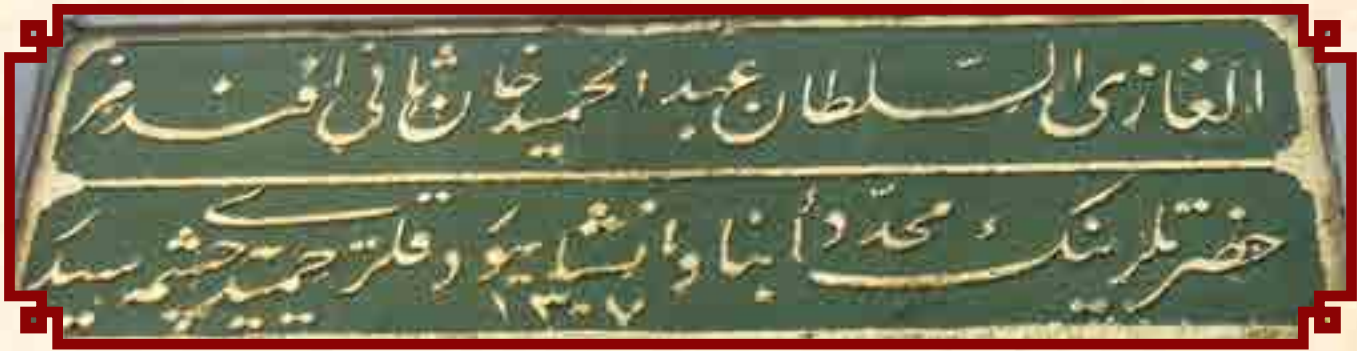 الغازى السلطان عبد الحميد خان ثانى افندمز
حضرتلرينك مجدداً بنا وانشا بيوردقلرى حميديه چشمه سيدر
١٣٠٧